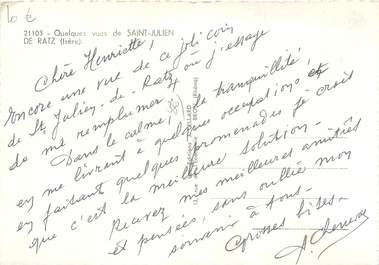 10 €
21103 - Quelques vues de SAINT-JULIEN
DE RATZ (Isère).
Chère Henriette,
Encore une vue de ce joli coin
de St Julien-de-Ratz où j'essaye
de me remplumer.
Dans le calme, la tranquillité
en me livrant à quelques occupations et
en faisant quelques promenades je crois
que c'est la meilleure solution -
Recevez mes meilleures amitiés
et pensées, sans oublier mon
souvenir à tous -
Grosses bises -